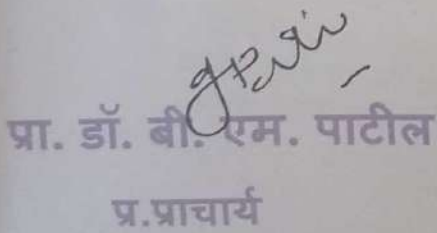 प्रा. डॉ. बी. एम. पाटील
प्र.प्राचार्य